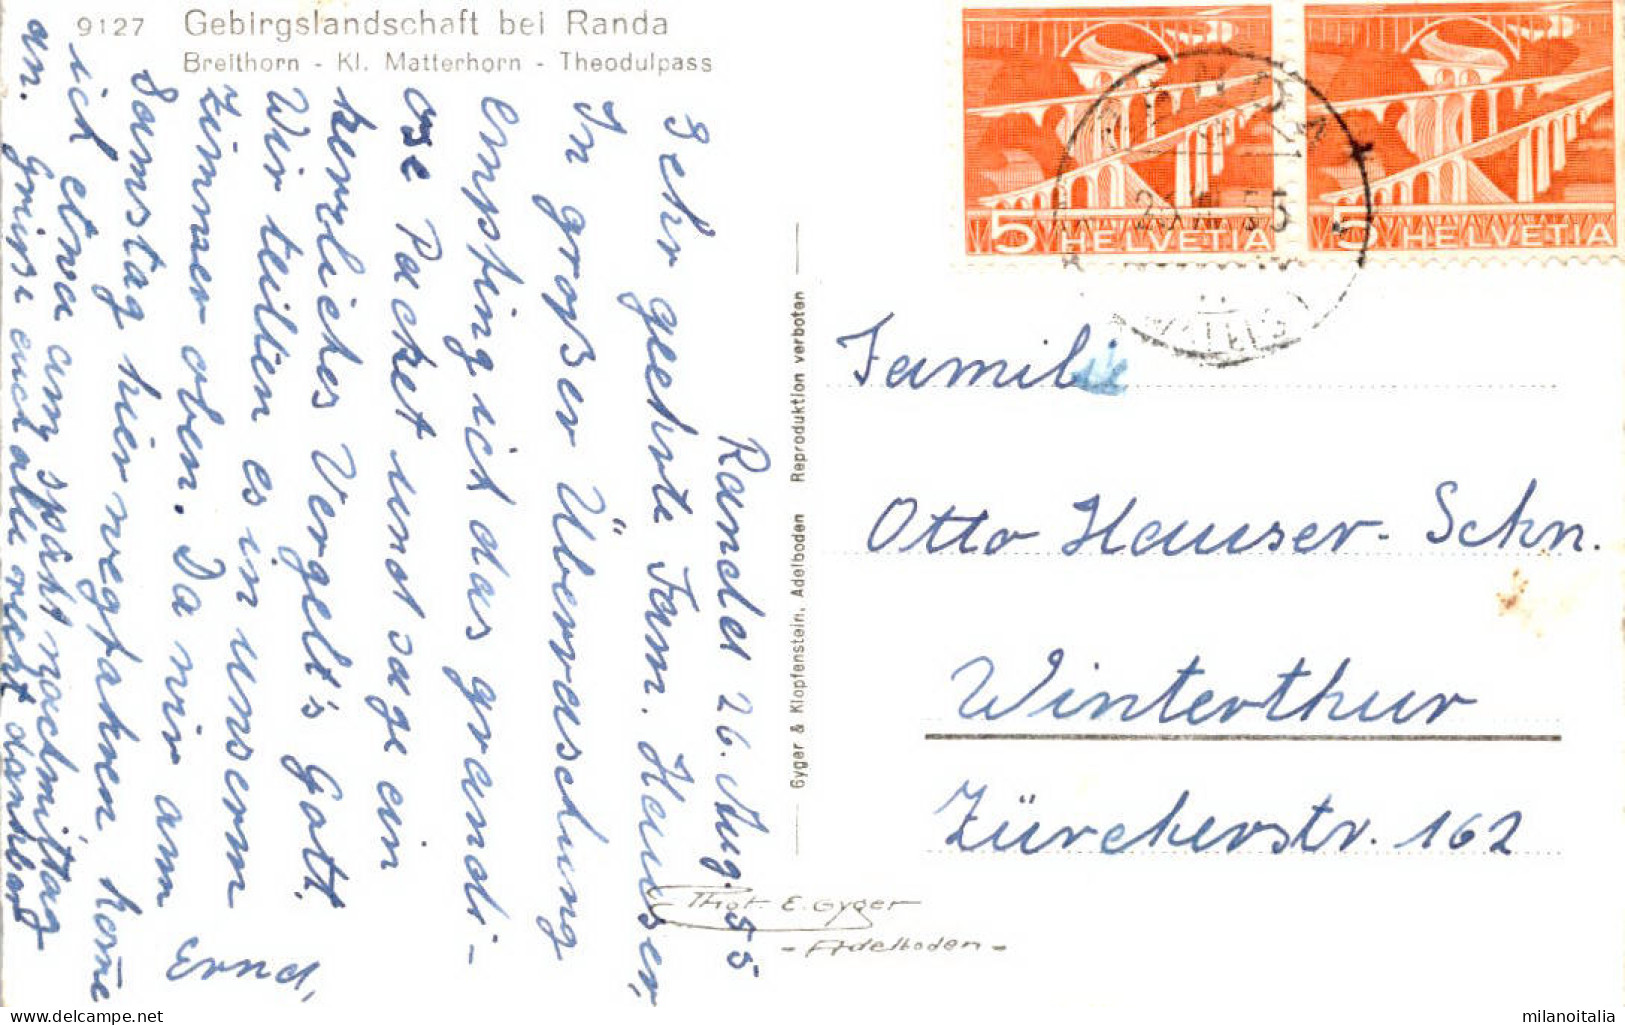 9127 Gebirgslandschaft bei Randa
Breithorn - Kl. Matterhorn - Theodulpass
Randa 26. Aug. 55
Sehr geehrte Fam. Hauser,
In großer Überraschung
empfing ich das grandi-
ose Packet und sage ein
herrliches Vergelt's Gott.
Wir teilten es in unserm
Zimmer oben. Da wir am
Samstag hier wegfahren komme
ich etwa am spät nachmittag
an. Grüsse euch alle recht dankbar
Ernst,
Gyger & Klopfenstein, Adelboden Reproduktion verboten
Phot. E. Gyger
- Adelboden -
5 HELVETIA
5 HELVETIA
RANDA
55
(WALLIS)
Familie
Otto Hauser-Schn.
Winterthur
Zürcherstr. 162
milanoitalia